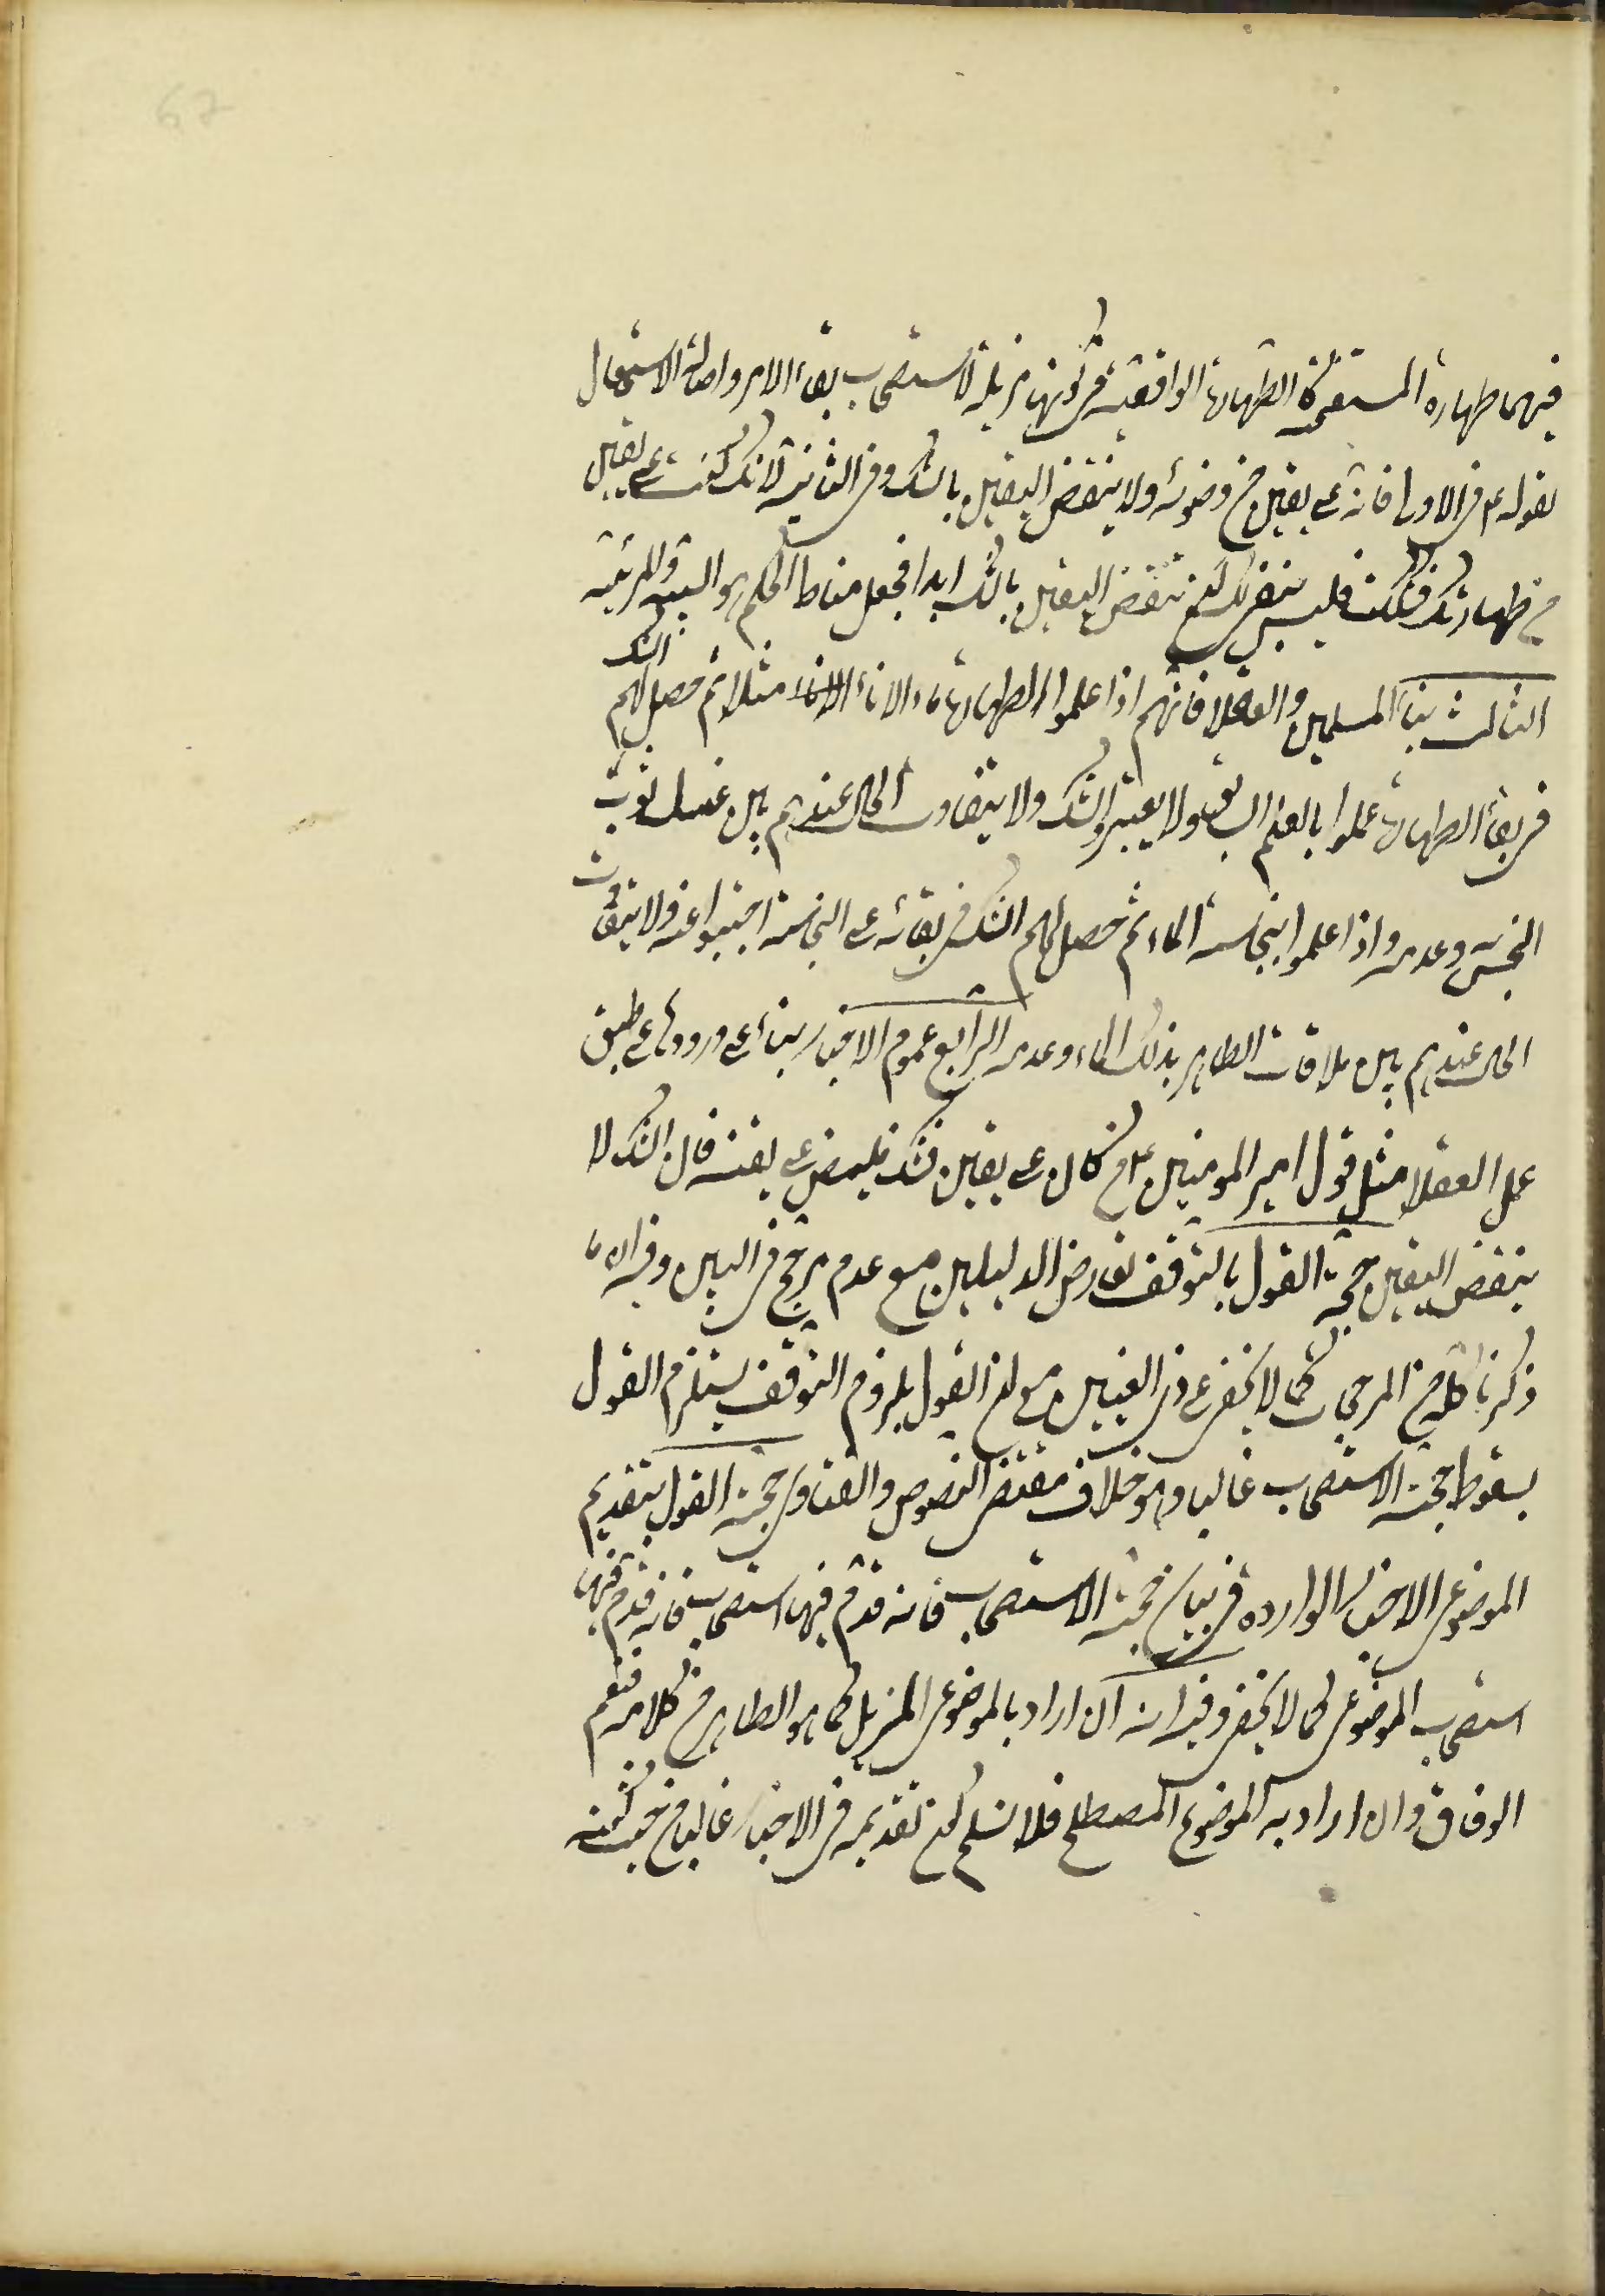 67
فيهما طهارة المستصحبة كالطهارة الواقعية في كونها مزيلة لاستصحاب بقاء الامر واصالة الاشتغال
بقوله ع في الاولى فانه على يقين من وضوئه ولا ينقض اليقين بالشك وفي الثانية لانك كنت على يقين
من طهارتك فشككت فليس ينبغي لك ان تنقض اليقين بالشك ابدا فجعل مناط الحكم هو
الثالث بناء المسلمين والعقلا فانهم اذا علموا الطهارة ماء الاناء مثلا ثم حصل لهم الشك
في بقاء الطهارة عملوا بالعلم السابق ولا يعتبروا الشك ولا يتفاوت الحال عندهم بين غسل ثوب
النجس به وعدمه واذا علموا بنجاسة الماء ثم حصل لهم الشك في بقائه على النجاسة اجتنبوا عنه ولا يتفاوت
الحال عندهم بين ملاقات الطاهر بذلك الماء وعدمه الرابع عموم الاخبار بناء على ورودها على طبق
عمل العقلا مثل قول امير المومنين ع من كان على يقين فشك فليمض على يقينه فان الشك لا
ينقض اليقين حجة القول بالتوقف تعارض الدليلين مع عدم مرجح في البين وفيه ان ما
ذكرناه كله من المرجحات كما لا يخفى على ذي العينين مع ان القول بلزوم التوقف يستلزم القول
بسقوط حجية الاستصحاب غالبا وهو خلاف مقتضى النصوص والفتاوى حجة القول بتقديم
الموضوعى الاخبار الوارده في بيان حجية الاستصحاب فانه قدم فيها استصحاب فانه قدم فيها
استصحاب الموضوعى كما لا يخفى وفيه انه ان اراد بالموضوعى المزيل كما هو الظاهر من كلامه فنعم
الوفاق وان اراد به الموضوع المصطلح فلا نسلم ان تقديمه في الاخبار غالبا من حيث كونه